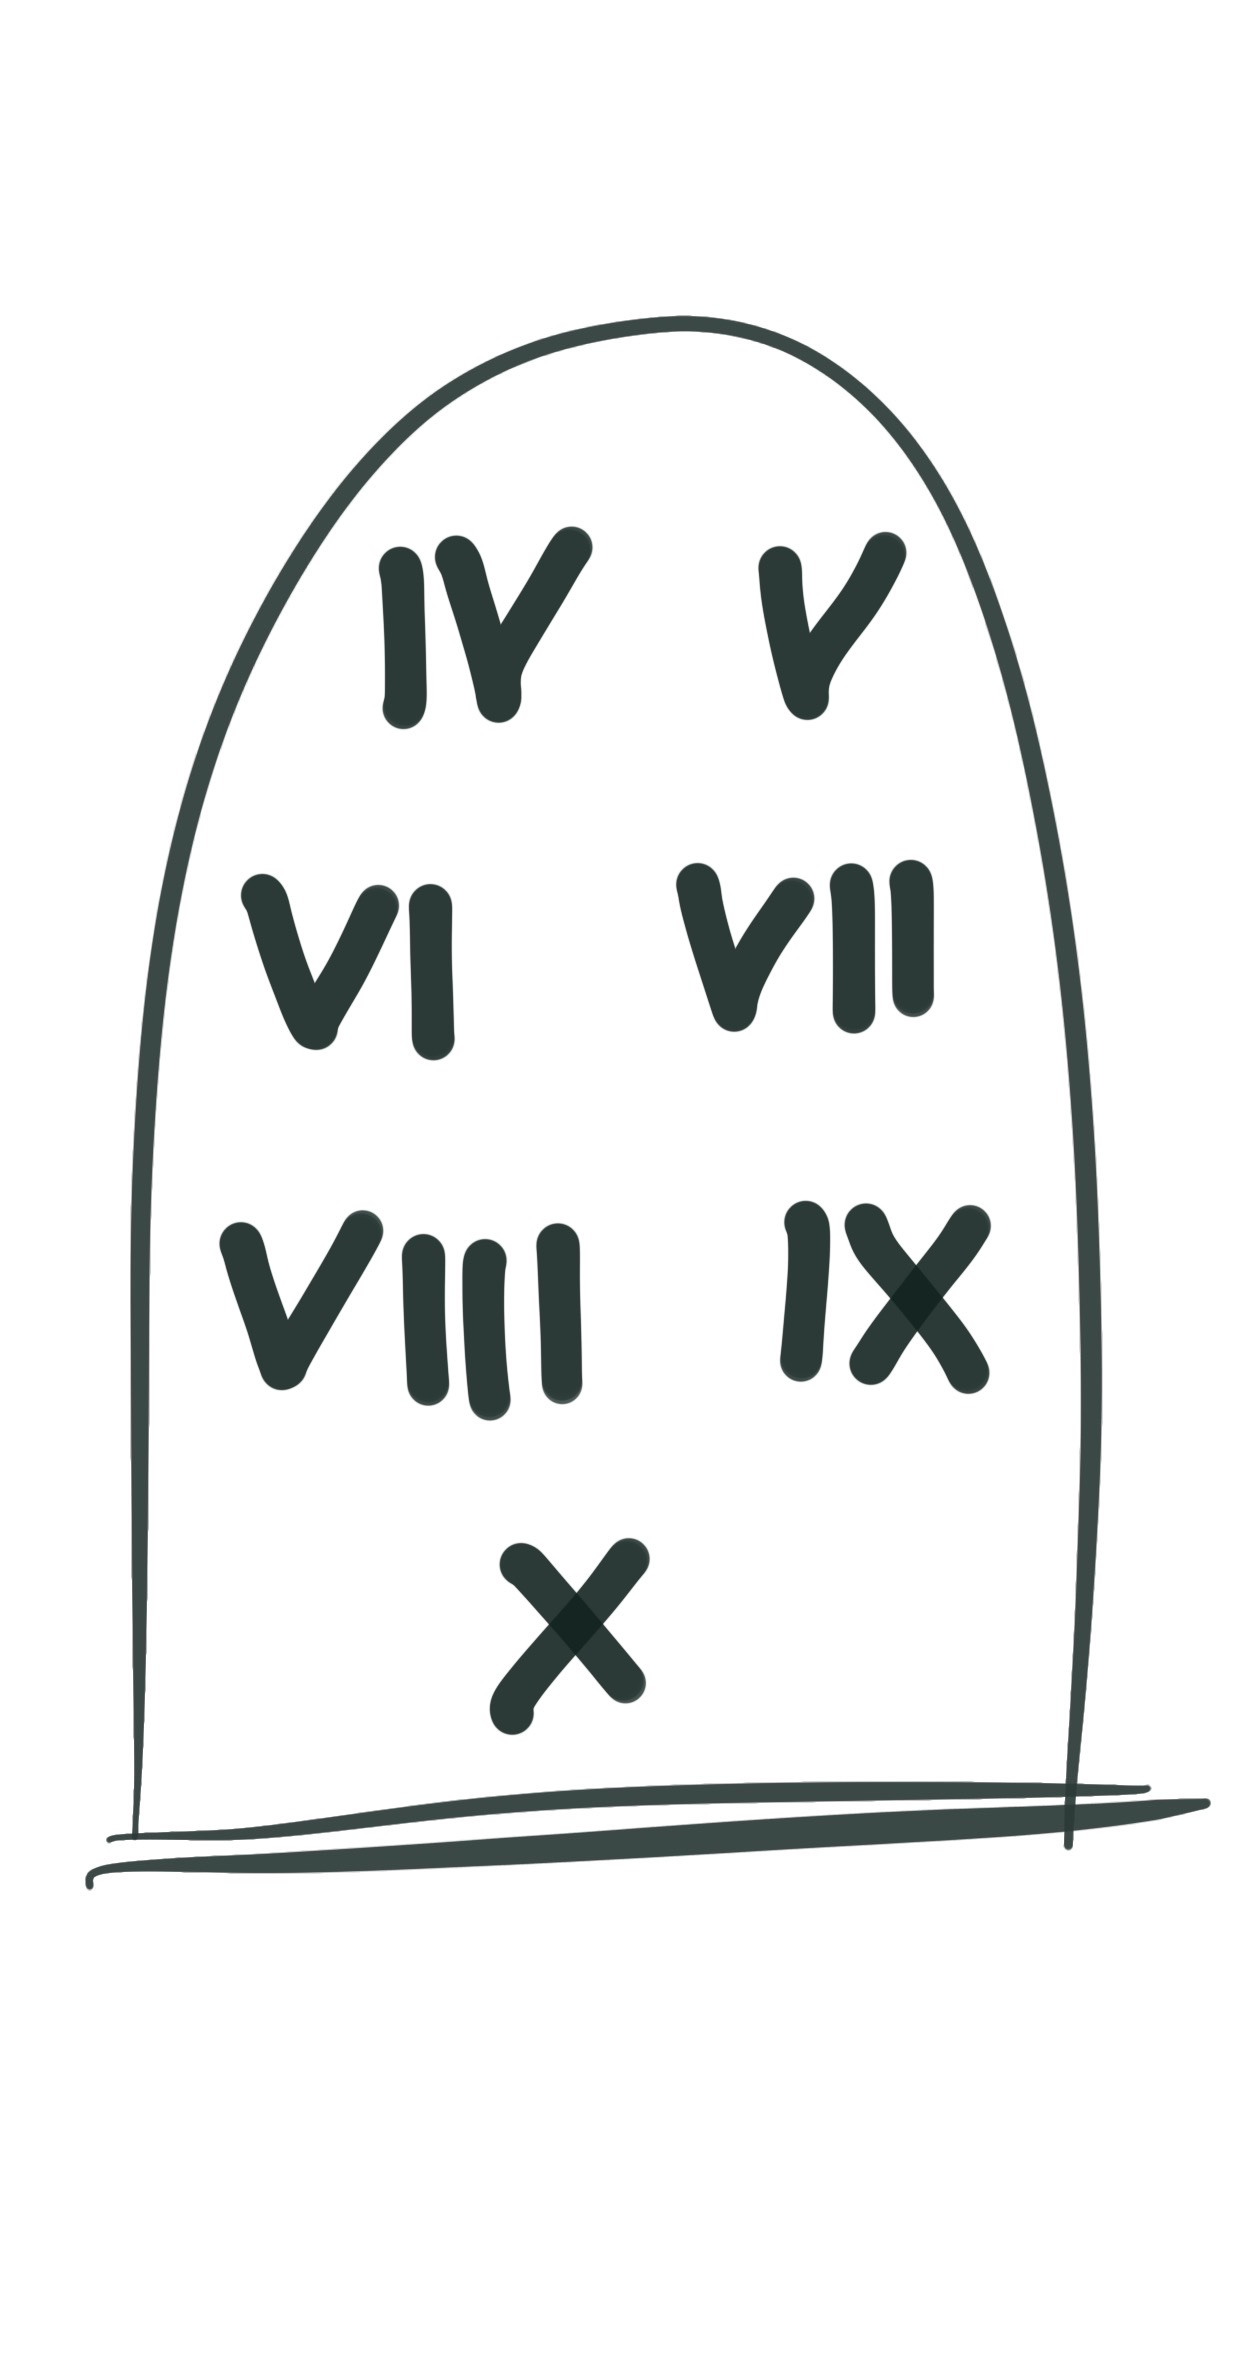 IV V
VI VII
VIII IX
X